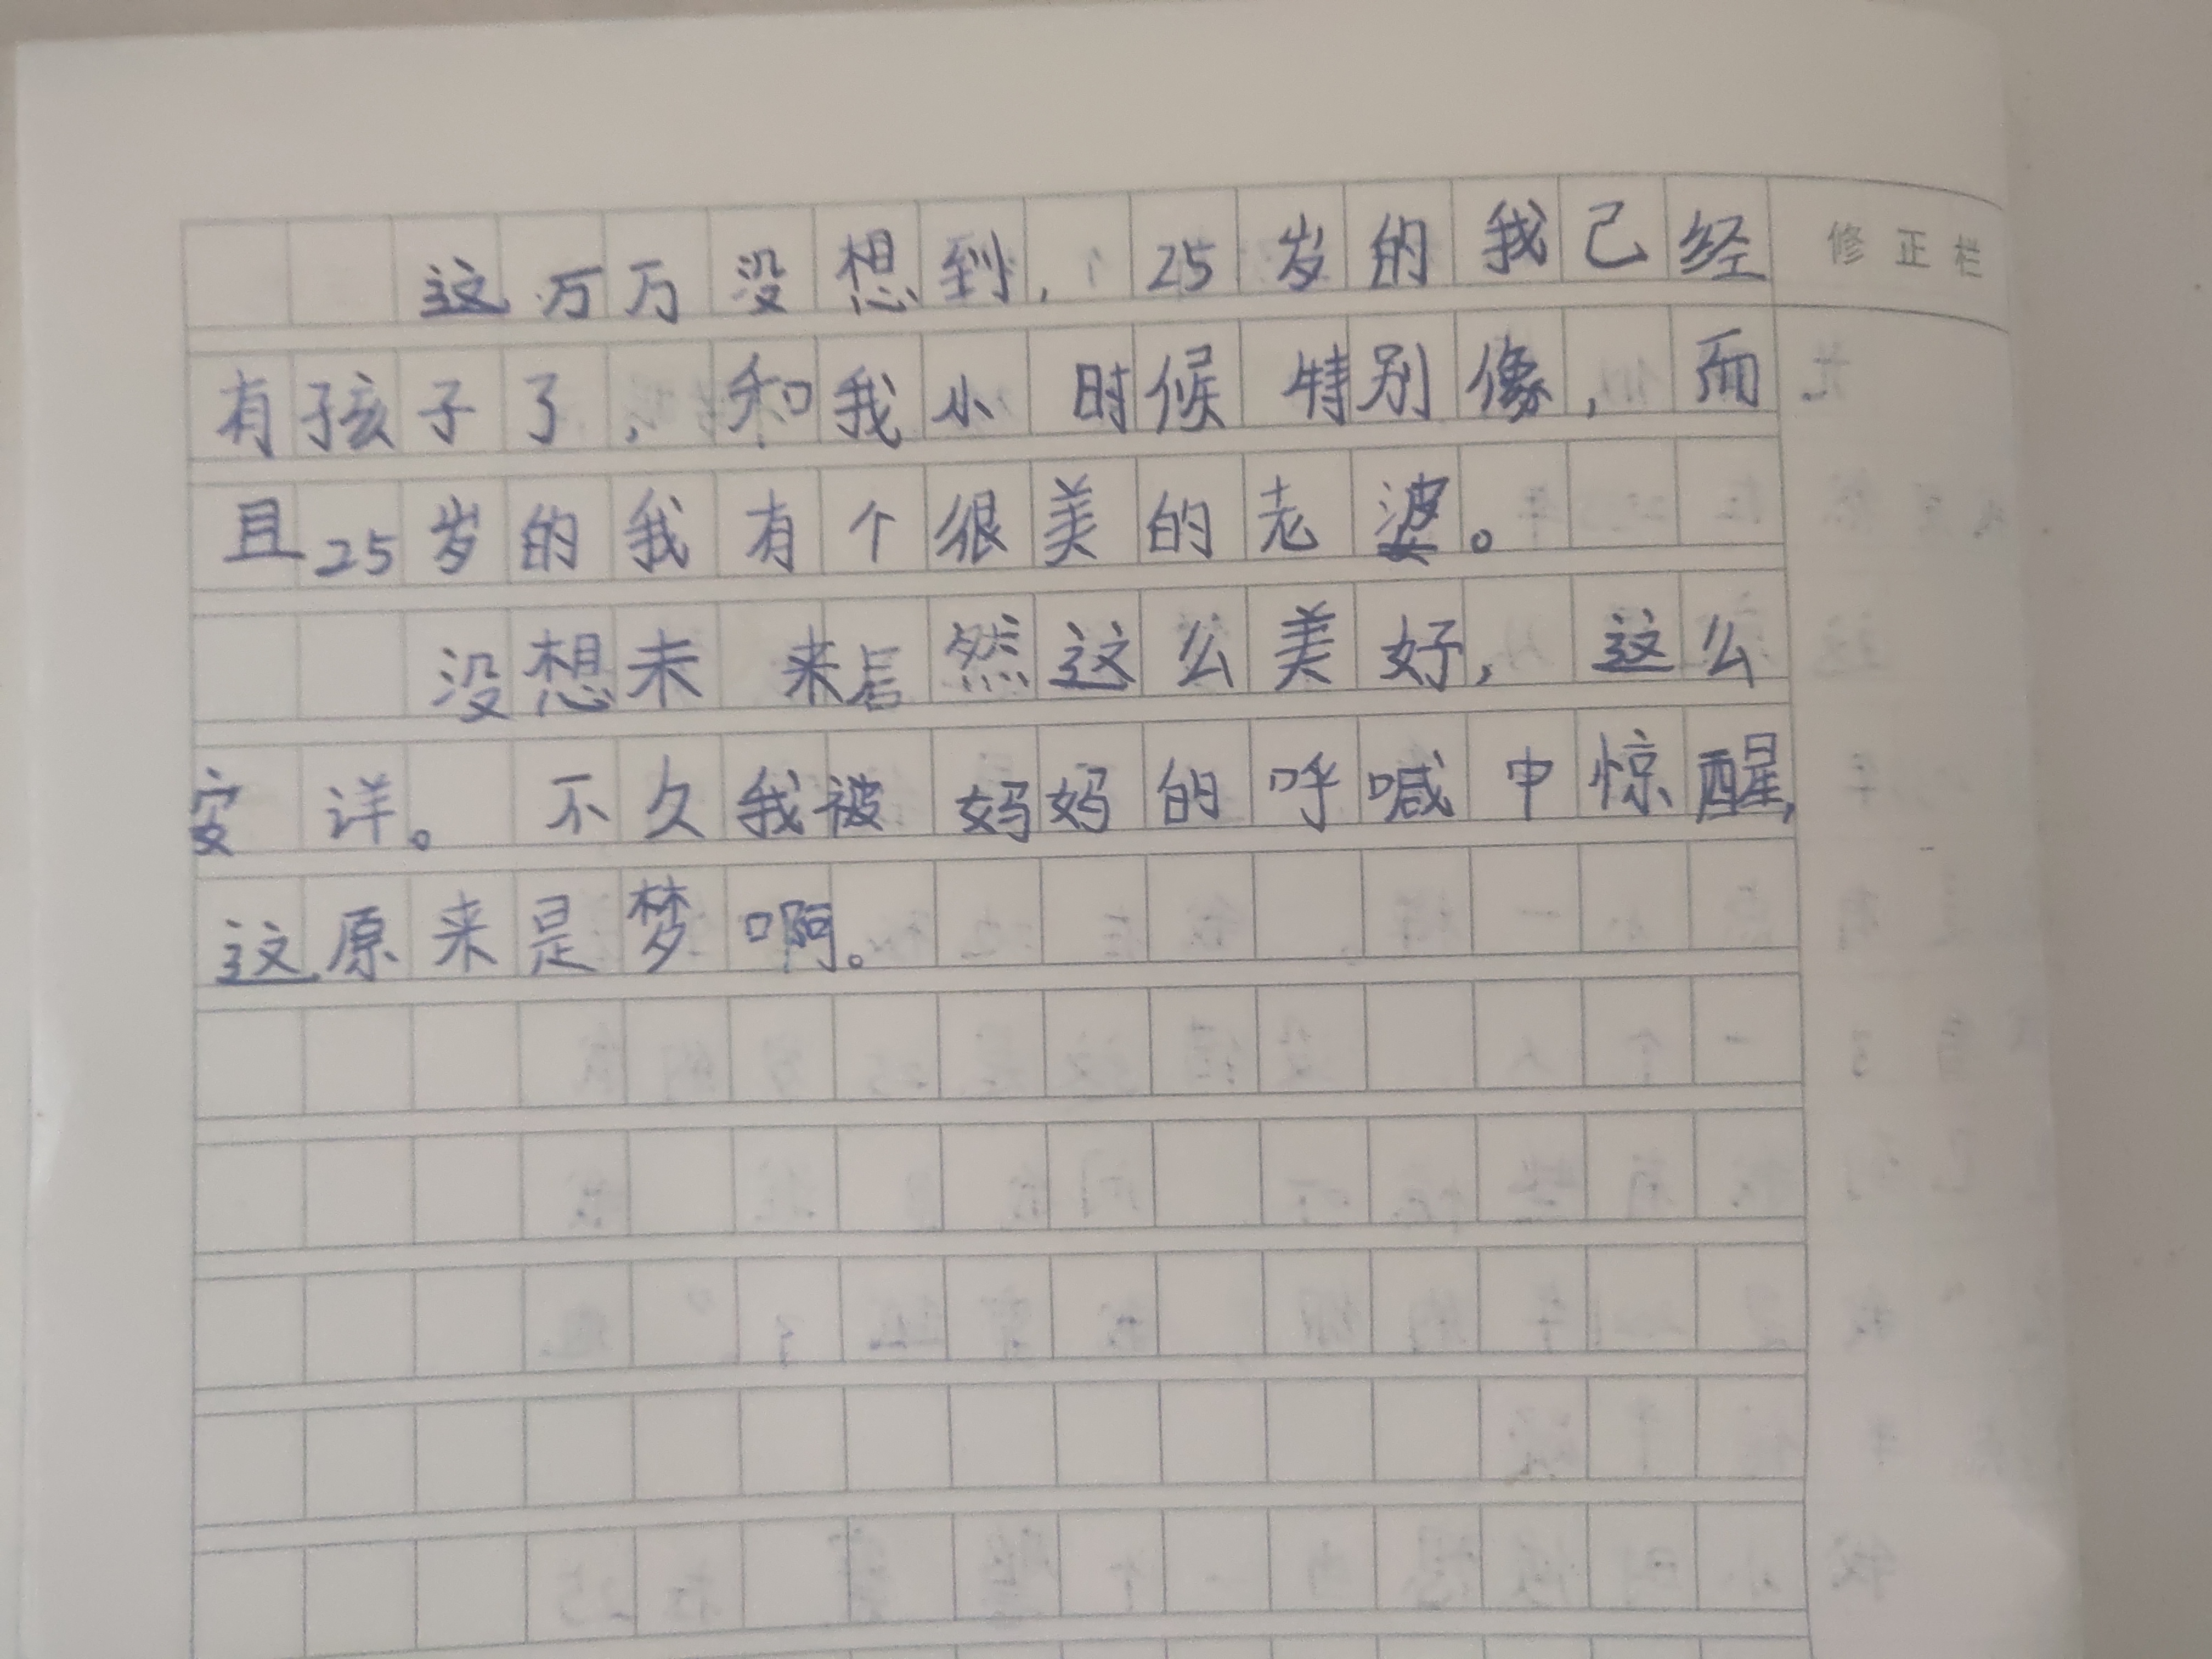 这万万没想到，25岁的我己经
修正栏
有孩子了，和我小时候特别像，而
且25岁的我有个很美的老婆。
没想未来居然这么美好，这么
安详。不久我被妈妈的呼喊中惊醒，
这原来是梦啊。